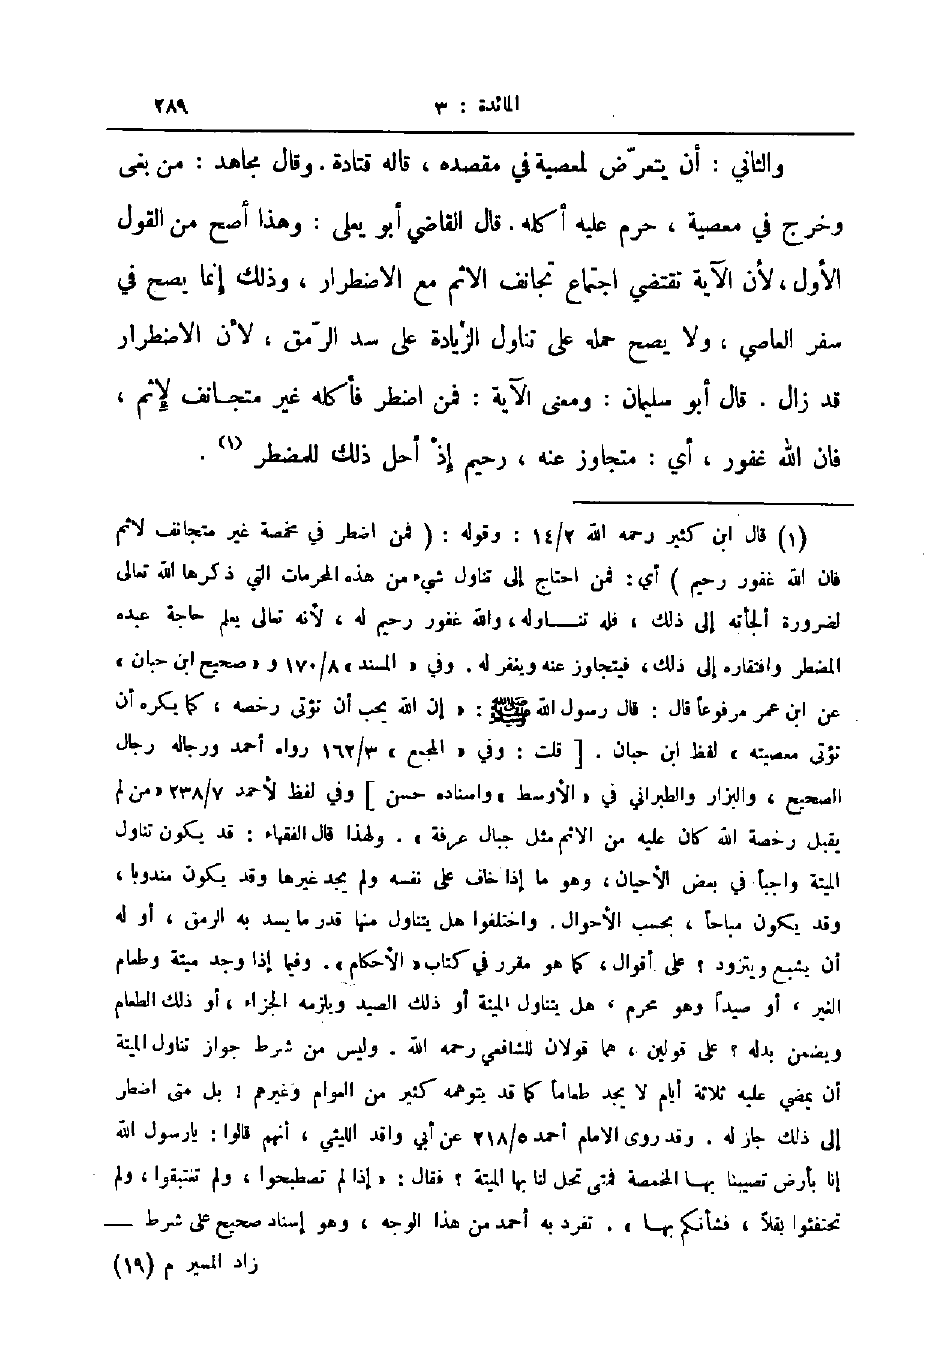 المائدة : ٣ ٢٨٩
والثاني : أن يتعرّض لمعصية في مقصده ، قاله قتادة . وقال مجاهد : من بغى
وخرج في معصية ، حرم عليه أكله . قال القاضي أبو يعلى : وهذا أصح من القول
الأول ، لأن الآية تقتضي اجتماع تجانف الاثم مع الاضطرار ، وذلك إنما يصح في
سفر العاصي ، ولا يصح حمله على تناول الزيادة على سد الرّمق ، لأن الاضطرار
قد زال . قال أبو سليمان : ومعنى الآية : فمن اضطر فأكله غير متجانف لإثم ،
فان الله غفور ، أي : متجاوز عنه ، رحيم إذ أحل ذلك للمضطر (١) .
(١) قال ابن كثير رحمه الله ١٤/٢ : وقوله : ( فمن اضطر في مخمصة غير متجانف لاثم
فان الله غفور رحيم ) أي : فمن احتاج إلى تناول شيء من هذه المحرمات التي ذكرها الله تعالى
لضرورة ألجأته إلى ذلك ، فله تناوله ، والله غفور رحيم له ، لأنه تعالى يعلم حاجة عبده
المضطر وافتقاره إلى ذلك ، فيتجاوز عنه ويغفر له . وفي « المسند » ١٧٠/٨ و « صحيح ابن حبان »
عن ابن عمر مرفوعاً قال : قال رسول الله ﷺ : « إن الله يحب أن تؤتى رخصه ، كما يكره أن
تؤتى معصيته » لفظ ابن حبان . [ قلت : وفي « المجمع » ١٦٢/٣ رواه أحمد ورجاله رجال
الصحيح ، والبزار والطبراني في « الأوسط » واسناده حسن ] وفي لفظ لأحمد ٢٣٨/٧ « من لم
يقبل رخصة الله كان عليه من الاثم مثل جبال عرفة » . ولهذا قال الفقهاء : قد يكون تناول
الميتة واجباً في بعض الأحيان ، وهو ما إذا خاف على نفسه ولم يجد غيرها وقد يكون مندوبا ،
وقد يكون مباحاً ، بحسب الأحوال . واختلفوا هل يتناول منها قدر ما يسد به الرمق ، أو له
أن يشبع ويتزود ؟ على أقوال ، كما هو مقرر في كتاب « الأحكام » . وفيما إذا وجد ميتة وطعام
الغير ، أو صيداً وهو محرم ، هل يتناول الميتة أو ذلك الصيد ويلزمه الجزاء ، أو ذلك الطعام
ويضمن بدله ؟ على قولين ، هما قولان للشافعي رحمه الله . وليس من شرط جواز تناول الميتة
أن يمضي عليه ثلاثة أيام لا يجد طعاماً كما قد يتوهمه كثير من العوام وغيرهم ! بل متى اضطر
إلى ذلك جاز له . وقد روى الامام أحمد ٢١٨/٥ عن أبي واقد الليثي ، أنهم قالوا : يارسول الله
إنا بأرض تصيبنا بها المخمصة فمتى تحل لنا بها الميتة ؟ فقال : « إذا لم تصطبحوا ، ولم تغتبقوا ، ولم
تحتفئوا بقلاً ، فشأنكم بها » . تفرد به أحمد من هذا الوجه ، وهو إسناد صحيح على شرط —
زاد المسير م (١٩)